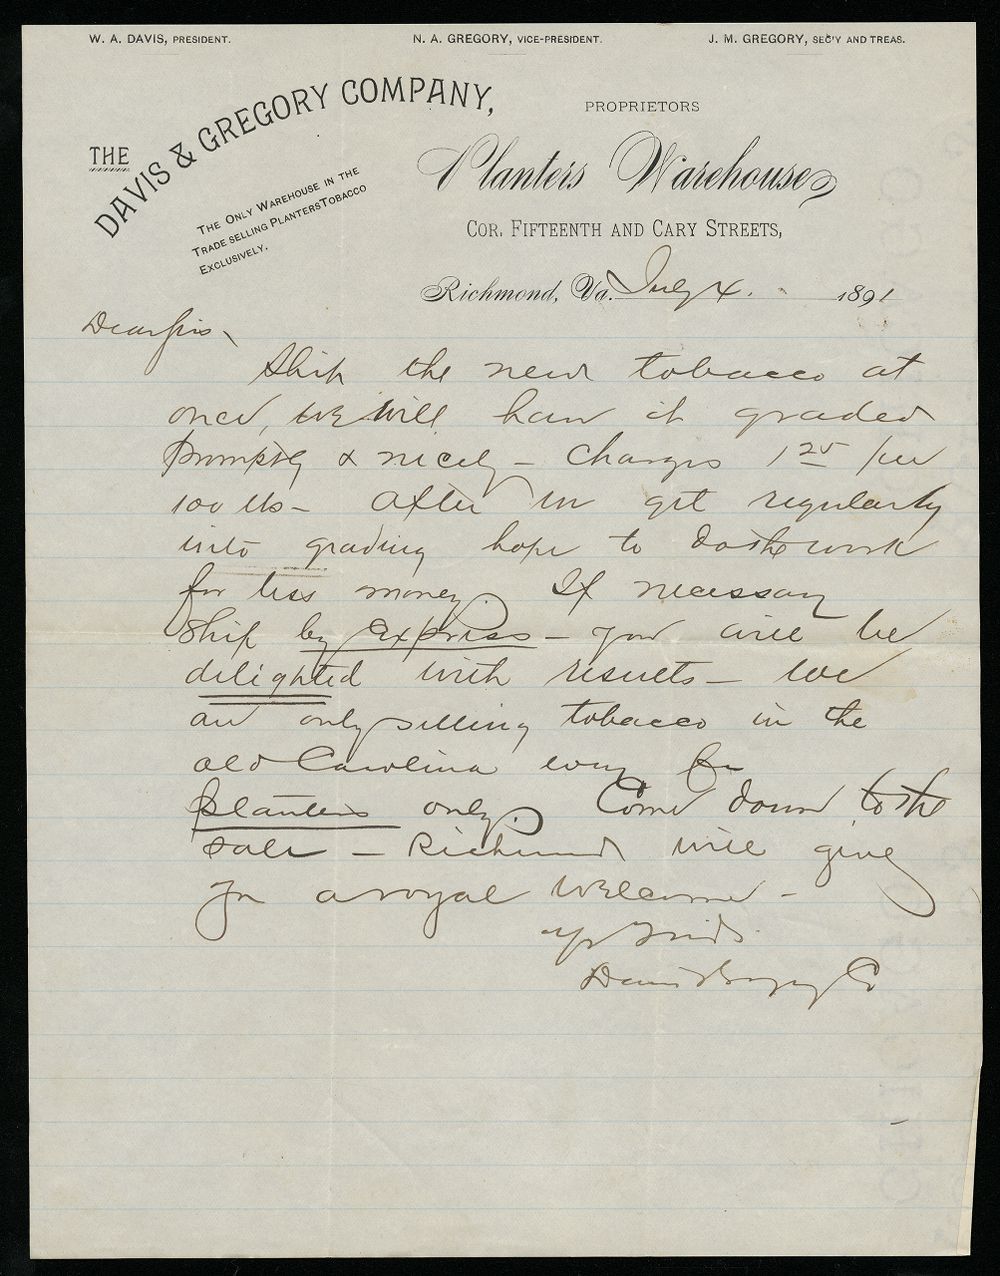 W. A. DAVIS, PRESIDENT. N. A. GREGORY, VICE-PRESIDENT. J. M. GREGORY, SEC'Y AND TREAS.
THE DAVIS & GREGORY COMPANY,
THE ONLY WAREHOUSE IN THE
TRADE SELLING PLANTERS TOBACCO
EXCLUSIVELY.
PROPRIETORS
Planters Warehouse
COR. FIFTEENTH AND CARY STREETS,
Richmond, Va. July 4. 1891
Dear Sirs,
Ship the new tobacco at
once, we will have it graded
promptly & nicely – Charges 1 25 per
100 lbs – After we get regularly
into grading hope to do the work
for less money. If necessary
ship by Express – you will be
delighted with results – We
are only selling tobacco in the
old Carolina way for
planters only. Come down to the
sale – Richmond will give
you a royal welcome –
Yr friends
Davis & Gregory Co